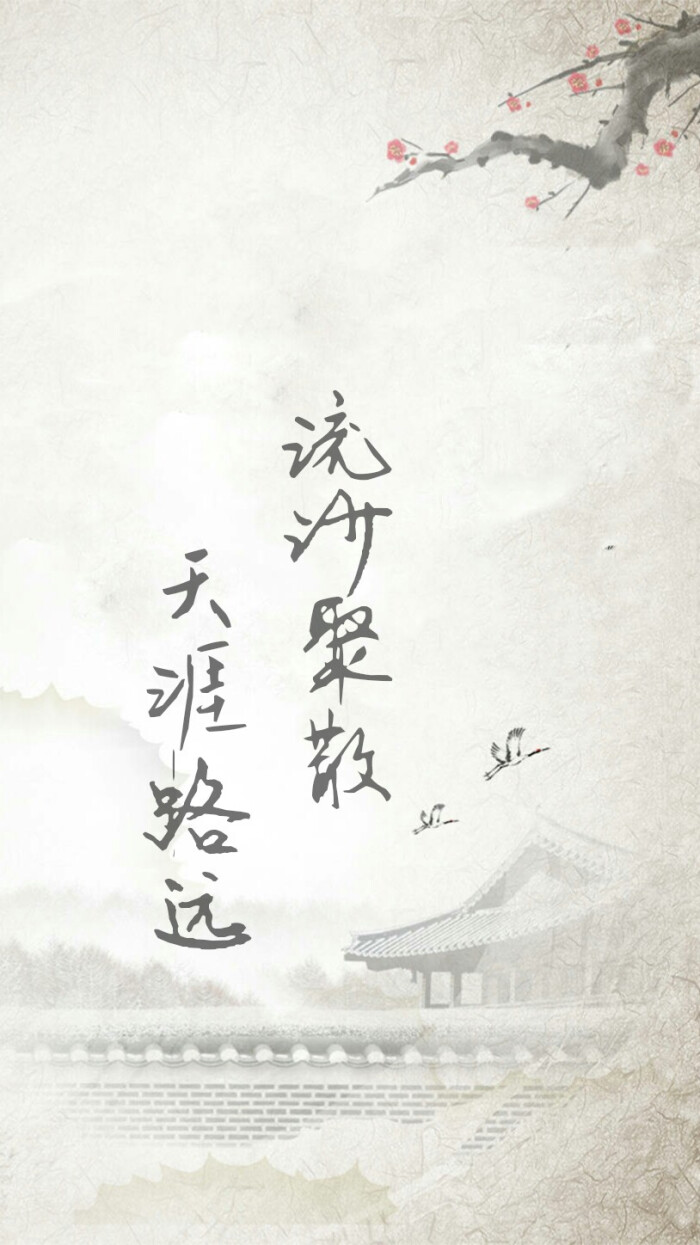 流沙聚散
天涯路远